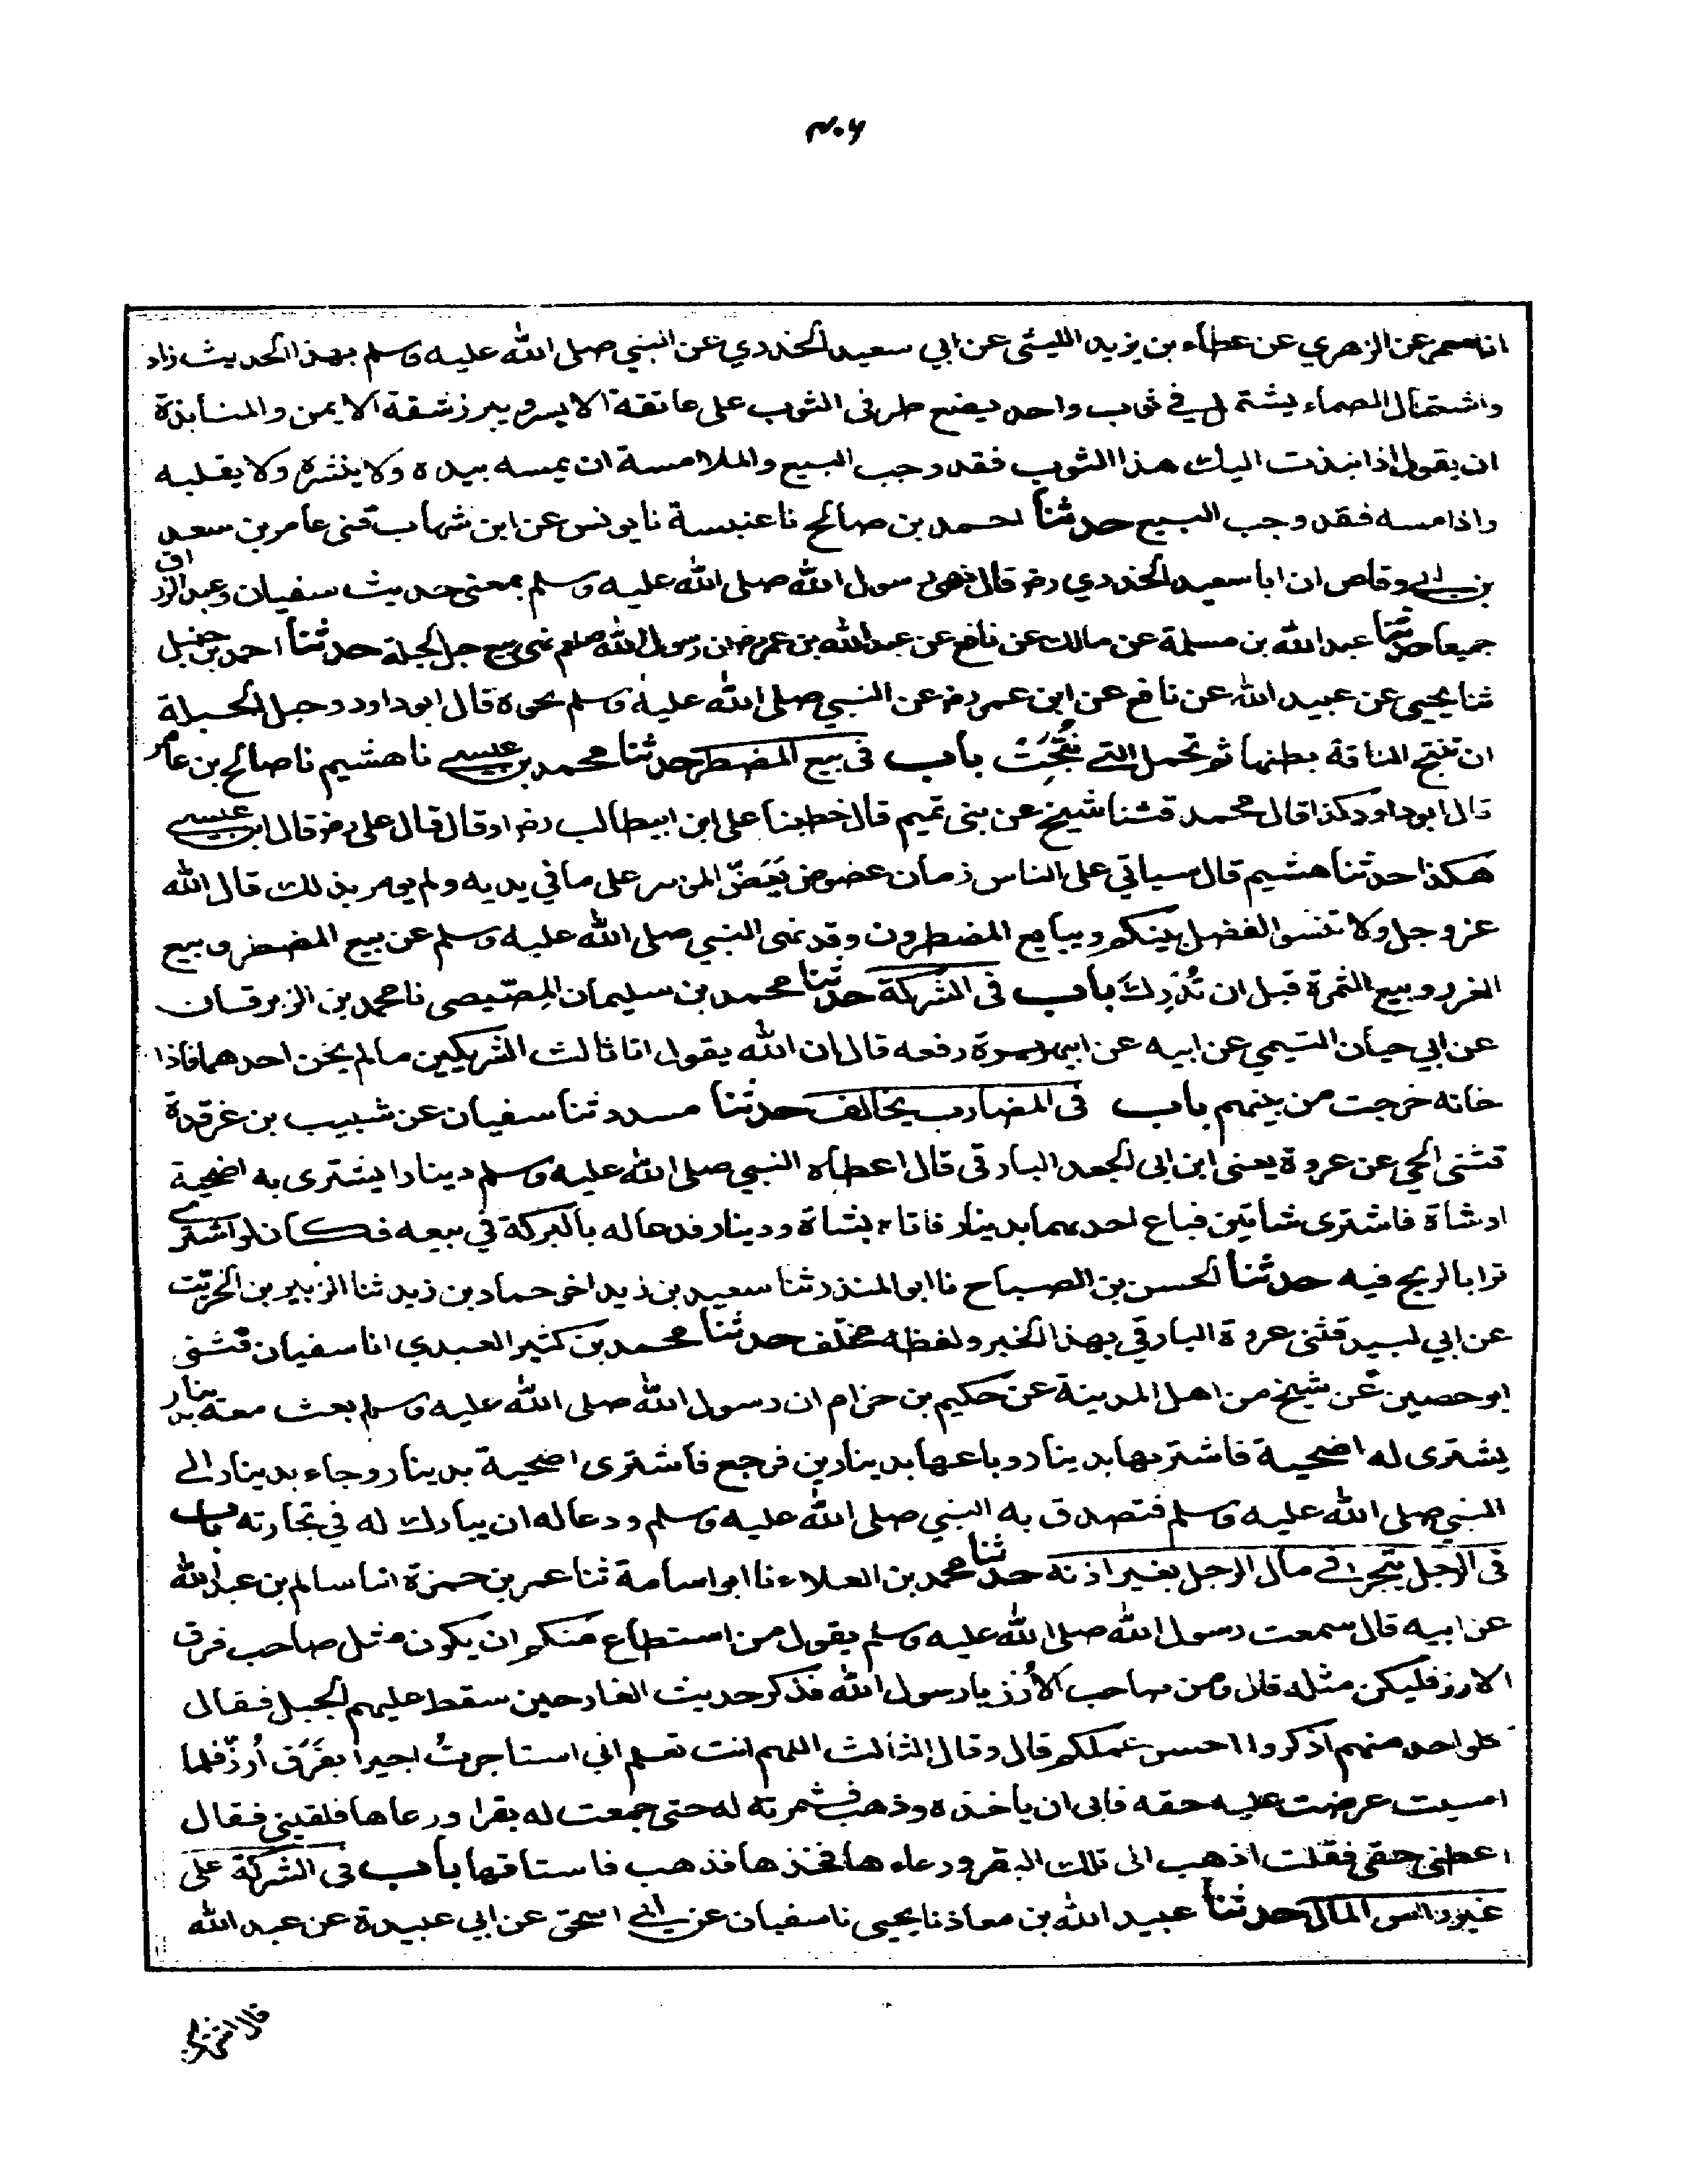 ٤٠٦
انا معمر عن الزهري عن عطاء بن يزيد الليثى عن ابي سعيد الخدري عن النبي صلى الله عليه وسلم بهذا الحديث زاد
واشتمال الصماء يشتمل في ثوب واحد يضع طرفى الثوب على عاتقة الايسر و يبرز شقة الايمن والمنابذة
ان يقول اذا نبذت اليك هذا الثوب فقد وجب البيع والملامسة ان يمسه بيده ولا ينشره ولا يقلبه
واذا مسه فقد وجب البيع حدثنا احمد بن صالح نا عنبسة نا يونس عن ابن شهاب قثنى عامر بن سعد
بن ابي وقاص ان ابا سعيد الخدري رض قال نهى رسول الله صلى الله عليه وسلم بمعنى حديث سفيان وعبد الرزاق
جميعا حدثنا عبد الله بن مسلمة عن مالك عن نافع عن عبد الله بن عمر رض ان رسول الله صلعم نهى بيع حبل الحبلة حدثنا احمد بن حنبل
ثنا يحيى عن عبيد الله عن نافع عن ابن عمر رض عن النبي صلى الله عليه وسلم نحوه قال ابو داود وحبل الحبلة
ان تنتج الناقة بطنها ثم تحمل التي نُتِجَتْ باب فى بيع المضطر حدثنا محمد بن عيسى نا هشيم نا صالح بن عامر
قال ابو داود كذا قال محمد قثنا شيخ عن بنى تميم قال خطبنا على ابن ابيطالب رض او قال قال على رض قال ابن عيسى
هكذا حدثنا هشيم قال سياتي على الناس زمان عضوض يَعَضّ الموسر على ما في يديه ولم يومر بذلك قال الله
عز وجل ولا تنسوا الفضل بينكم ويبايع المضطرون وقد نهى النبي صلى الله عليه وسلم عن بيع المضطر وبيع
الغرر وبيع الثمرة قبل ان تُدْرِكَ باب فى الشركة حدثنا محمد بن سليمان المِصّيصى نا محمد بن الزبرقان
عن ابي حيان التيمي عن ابيه عن ابي هريرة رفعه قال ان الله يقول انا ثالث الشريكين مالم يخن احدهما فاذا
خانه خرجت من بينهم باب فى المضارب يخالف حدثنا مسدد ثنا سفيان عن شبيب بن غرقدة
قثنى الحي عن عروة يعنى ابن ابى الجعد البارقى قال اعطاه النبي صلى الله عليه وسلم دينارا يشترى به اضحية
اوشاة فاشترى شاتين فباع احدهما بدينار فاتاه بشاة ودينار فدعا له بالبركة في بيعه فكان لو اشترى
ترابا لربح فيه حدثنا الحسن بن الصباح نا ابو المنذر ثنا سعيد بن زيد اخو حماد بن زيد ثنا الزبير بن الخرّيت
عن ابي لبيد قثنى عروة البارقي بهذا الخبر ولفظه مختلف حدثنا محمد بن كثير العبدي انا سفيان قثنى
ابو حصين عن شيخ من اهل المدينة عن حكيم بن حزام ان رسول الله صلى الله عليه وسلم بعث معه بدينار
يشترى له اضحية فاشتريها بدينار وباعها بدينارين فرجع فاشترى اضحية بدينار وجاء بدينار الى
النبي صلى الله عليه وسلم فتصدق به النبي صلى الله عليه وسلم ودعا له ان يبارك له في تجارته باب
فى الرجل يتجر في مال الرجل بغير اذنه حدثنا محمد بن العلاء نا ابو اسامة ثنا عمر بن حمزة انا سالم بن عبد الله
عن ابيه قال سمعت رسول الله صلى الله عليه وسلم يقول من استطاع منكم ان يكون مثل صاحب فرق
الارز فليكن مثله قال ومن صاحب الأرز يا رسول الله فذكر حديث الغار حين سقط عليهم الجبل فقال
كل واحد منهم اذكروا احسن عملكم قال وقال الثالث اللهم انت تعلم اني استاجرتُ اجيرا بفَرَق أرزّ فلما
امسيت عرضت عليه حقه فابى ان ياخذه وذهب فثمرته له حتى جمعت له بقرا ورعاها فلقيني فقال
اعطنى حقى فقلت اذهب الى تلك البقر ورعاءها فخذها فذهب فاستاقها باب فى الشركة على
غير راس المال حدثنا عبيد الله بن معاذ نا يحيى نا سفيان عن ابي اسحق عن ابي عبيدة عن عبد الله
قال اشتركت